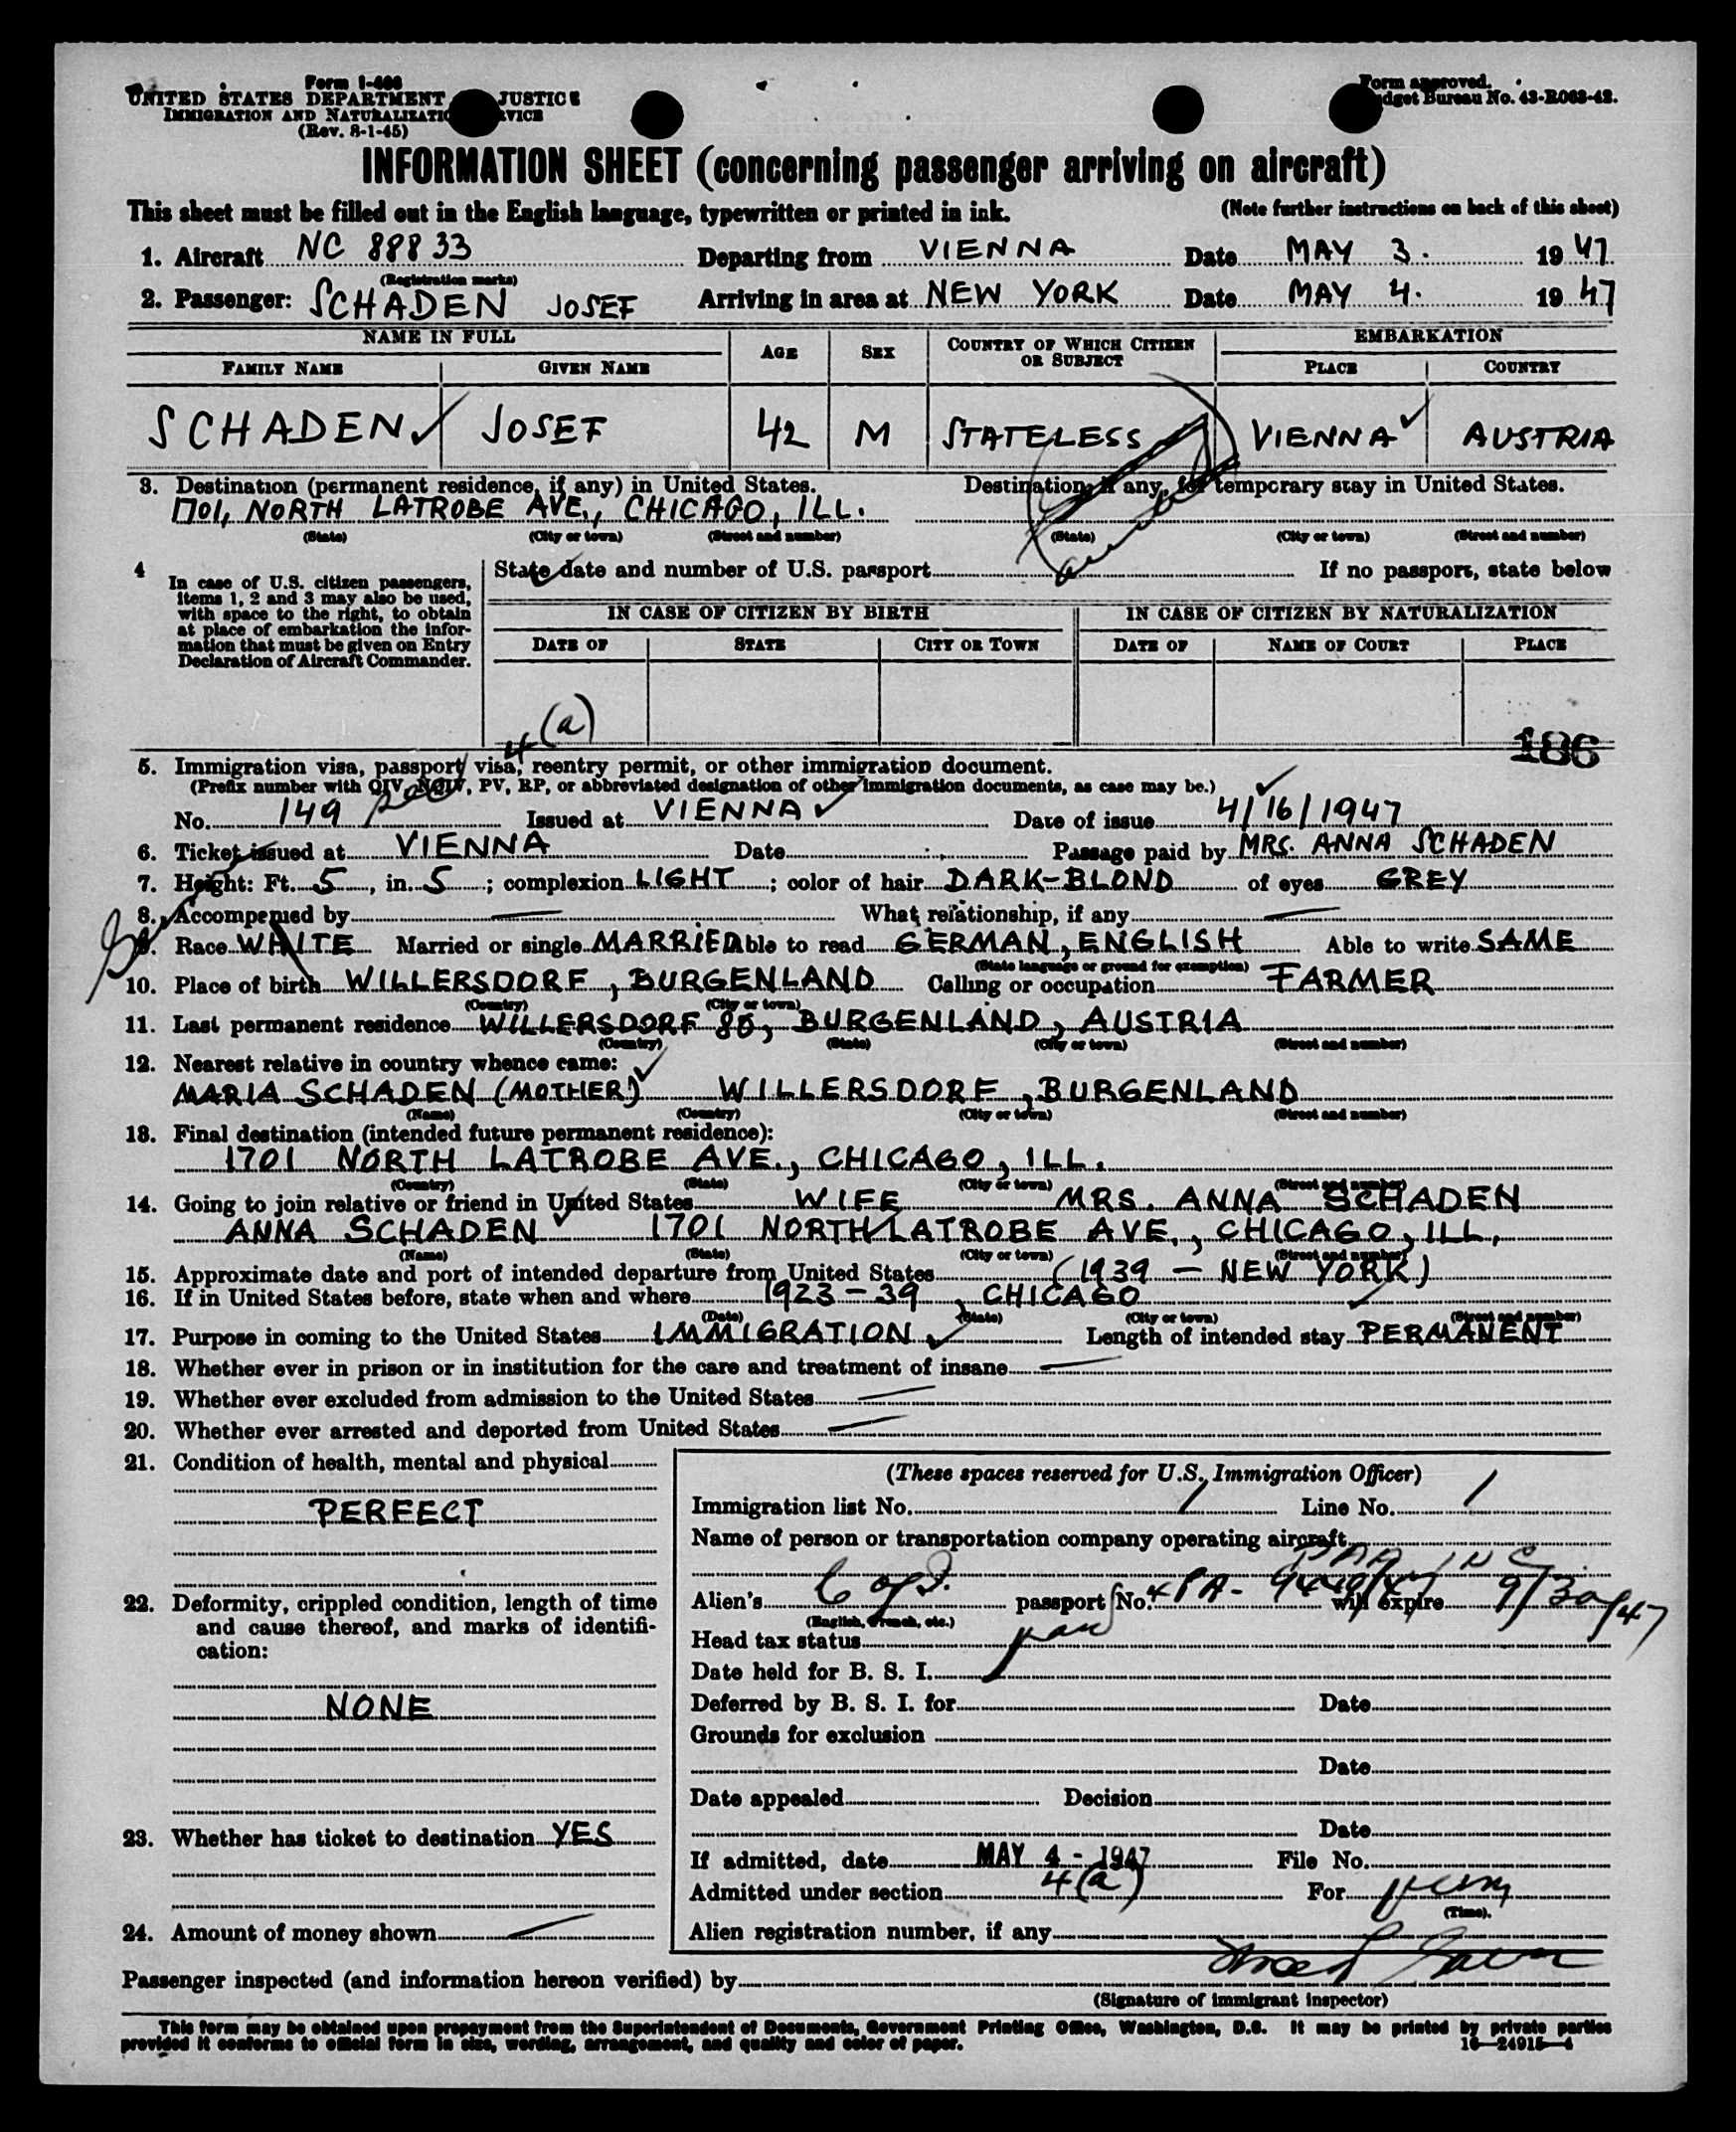 Form I-466
UNITED STATES DEPARTMENT JUSTICE
IMMIGRATION AND NATURALIZATION SERVICE
(Rev. 8-1-45)
Form approved.
Budget Bureau No. 43-R063-42.
INFORMATION SHEET (concerning passenger arriving on aircraft)
This sheet must be filled out in the English language, typewritten or printed in ink. (Note further instructions on back of this sheet)
1. Aircraft NC 88833 Departing from VIENNA Date MAY 3. 19 47
(Registration marks)
2. Passenger: SCHADEN JOSEF Arriving in area at NEW YORK Date MAY 4. 19 47
NAME IN FULL AGE SEX COUNTRY OF WHICH CITIZEN OR SUBJECT EMBARKATION
FAMILY NAME GIVEN NAME PLACE COUNTRY
SCHADEN JOSEF 42 M STATELESS VIENNA AUSTRIA
3. Destination (permanent residence, if any) in United States. Destination, if any, for temporary stay in United States.
1701, NORTH LATROBE AVE., CHICAGO, ILL.
(State) (City or town) (Street and number) (State) (City or town) (Street and number)
4 In case of U.S. citizen passengers, items 1, 2 and 3 may also be used, with space to the right, to obtain at place of embarkation the information that must be given on Entry Declaration of Aircraft Commander.
State date and number of U.S. passport If no passport, state below
IN CASE OF CITIZEN BY BIRTH IN CASE OF CITIZEN BY NATURALIZATION
DATE OF STATE CITY OR TOWN DATE OF NAME OF COURT PLACE
4(a)
186
5. Immigration visa, passport visa, reentry permit, or other immigration document.
(Prefix number with QIV, NQIV, PV, RP, or abbreviated designation of other immigration documents, as case may be.)
No. 149 Issued at VIENNA Date of issue 4/16/1947
6. Ticket issued at VIENNA Date Passage paid by MRS. ANNA SCHADEN
7. Height: Ft. 5, in. 5; complexion LIGHT; color of hair DARK-BLOND of eyes GREY
8. Accompanied by — What relationship, if any —
9. Race WHITE Married or single MARRIED Able to read GERMAN, ENGLISH Able to write SAME
(State language or ground for exemption)
10. Place of birth WILLERSDORF, BURGENLAND Calling or occupation FARMER
(Country) (City or town)
11. Last permanent residence WILLERSDORF 85, BURGENLAND, AUSTRIA
(Country) (State) (City or town) (Street and number)
12. Nearest relative in country whence came:
MARIA SCHADEN (MOTHER) WILLERSDORF, BURGENLAND
(Name) (Country) (City or town) (Street and number)
13. Final destination (intended future permanent residence):
1701 NORTH LATROBE AVE., CHICAGO, ILL.
(Country) (State) (City or town) (Street and number)
14. Going to join relative or friend in United States WIFE MRS. ANNA SCHADEN
ANNA SCHADEN 1701 NORTH LATROBE AVE., CHICAGO, ILL.
(Name) (State) (City or town) (Street and number)
15. Approximate date and port of intended departure from United States (1939 - NEW YORK)
16. If in United States before, state when and where 1923-39, CHICAGO
(Date) (State) (City or town) (Street and number)
17. Purpose in coming to the United States IMMIGRATION Length of intended stay PERMANENT
18. Whether ever in prison or in institution for the care and treatment of insane —
19. Whether ever excluded from admission to the United States —
20. Whether ever arrested and deported from United States —
21. Condition of health, mental and physical
PERFECT
22. Deformity, crippled condition, length of time
and cause thereof, and marks of identification:
NONE
23. Whether has ticket to destination YES
24. Amount of money shown —
(These spaces reserved for U.S. Immigration Officer)
Immigration list No. 1 Line No. 1
Name of person or transportation company operating aircraft
PAA INC.
Alien's passport No. will expire 9/30/47
(English, French, etc.)
Head tax status
Date held for B. S. I.
Deferred by B. S. I. for Date
Grounds for exclusion
Date
Date appealed Decision
Date
If admitted, date MAY 4 - 1947 File No.
Admitted under section 4(a) For perm
(Time).
Alien registration number, if any
Passenger inspected (and information hereon verified) by
(Signature of immigrant inspector)
This form may be obtained upon prepayment from the Superintendent of Documents, Government Printing Office, Washington, D.C. It may be printed by private parties
provided it conforms to official form in size, wording, arrangement, and quality and color of paper. 16—24915-4